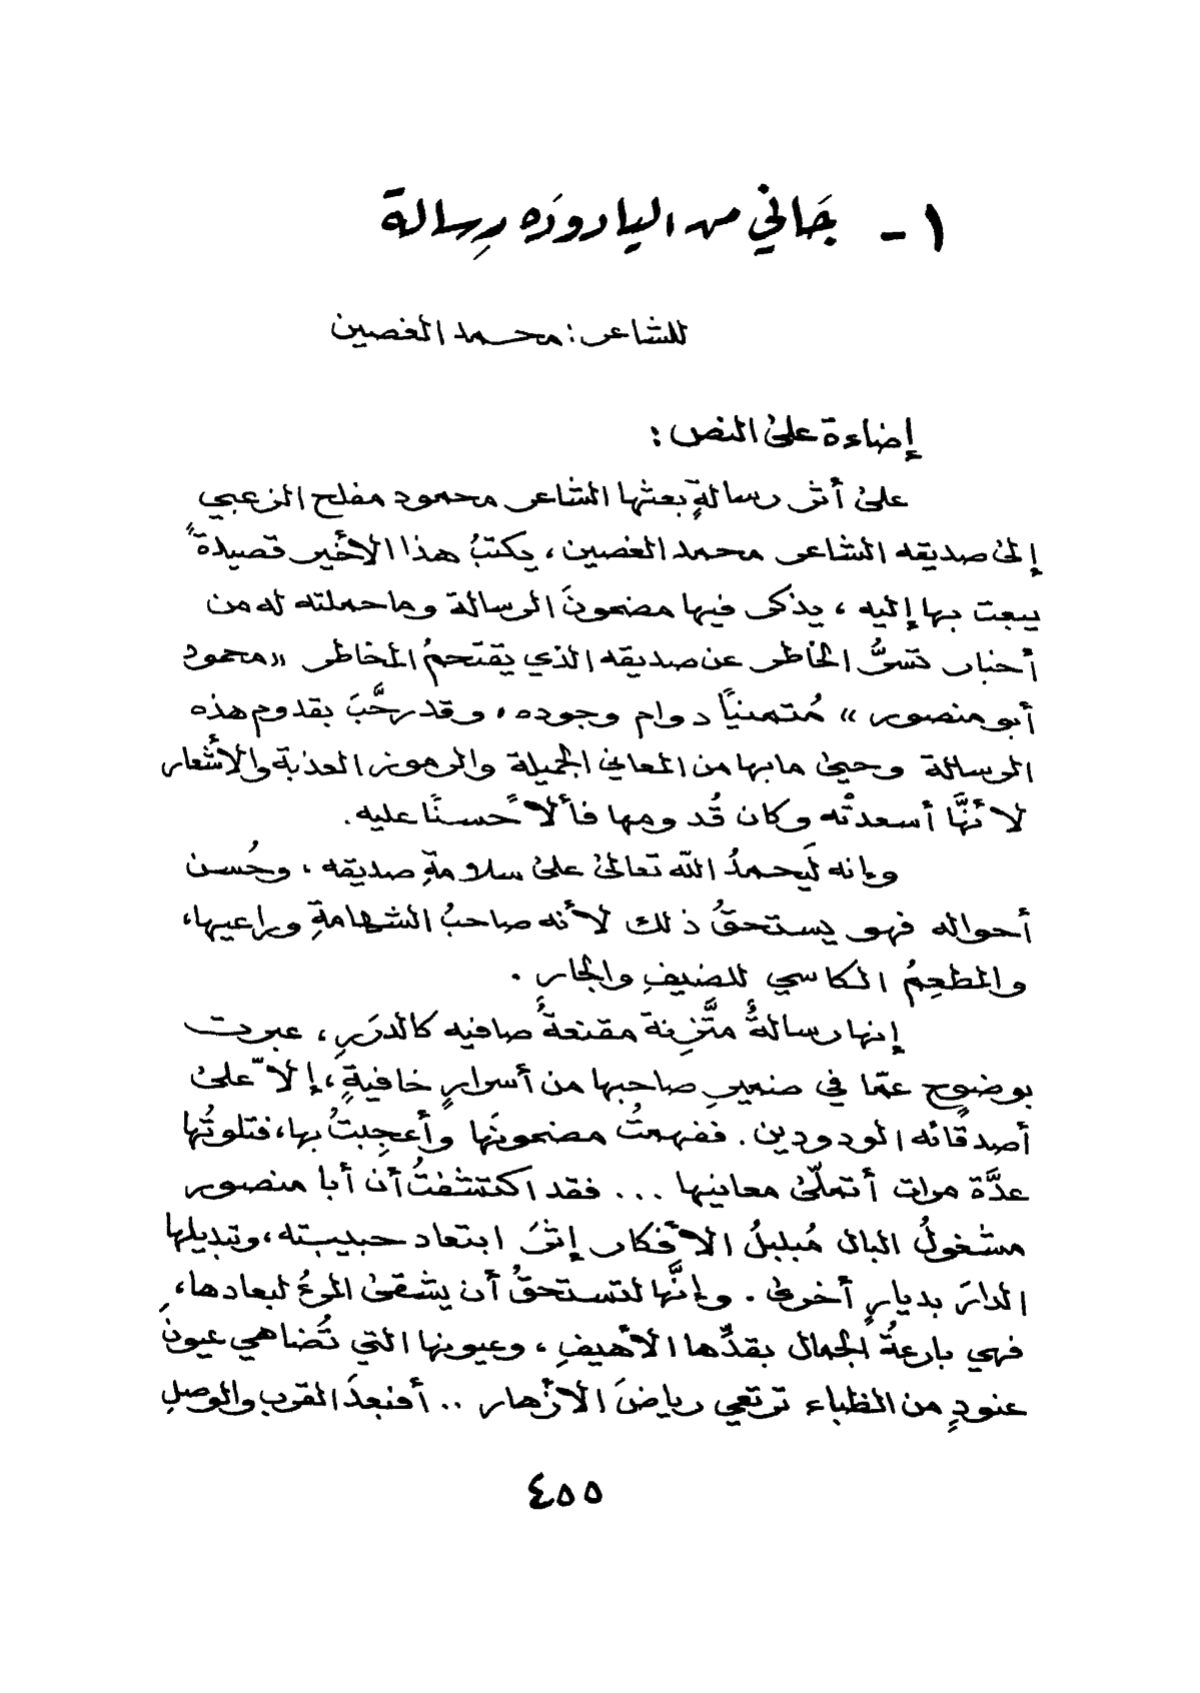 ١ - جَاني من اليادودَه رِسالة
للشاعر: محمد الغصين
إضاءة على النص:
على أثر رسالةٍ بعثها الشاعر محمود مفلح الزعبي
إلى صديقه الشاعر محمد الغصين، يكتبُ هذا الأخير قصيدةً
يبعث بها إليه، يذكر فيها مضمونَ الرسالة وما حملته له من
أخبار تسرُّ الخاطر عن صديقه الذي يقتحمُ المخاطر «محمود
أبو منصور» مُتمنياً دوام وجوده، وقد رحَّبَ بقدوم هذه
الرسالة وحيىٰ ما بها من المعاني الجميلة والرموز العذبة والأشعار
لأنَّها أسعدتْه وكان قُدومها فألاً حسناً عليه.
وإنه لَيحمدُ الله تعالى على سلامةِ صديقه، وحُسن
أحواله فهو يستحقُ ذلك لأنه صاحبُ الشهامةِ وراعيها،
والمطعِمُ الكاسي للضيفِ والجار.
إنها رسالةُ متَّزِنة مقنعةُ صافيه كالدرَرِ، عبرت
بوضوحٍ عمّا في ضميرِ صاحبها من أسرارٍ خافيةٍ، إلاّ على
أصدقائه الودودين. ففهمتُ مضمونَها وأُعجِبتُ بها، فتلوتُها
عدَّة مرات أتملّى معانيها ... فقد اكتشفتُ أن أبا منصور
مشغولُ البال مُبلبلُ الأفكار إثرَ ابتعاد حبيبته، وتبديلها
الدارَ بديارٍ أخرى. وإنَّها لتستحقُ أن يشقى المرءُ لبعادها،
فهي بارعةُ الجمال بقدِّها الأهيفِ، وعيونها التي تُضاهي عيونَ
عنودٍ من الظباء ترتعي رياضَ الأزهار .. أفبعدَ القربِ والوصلِ
٤٥٥